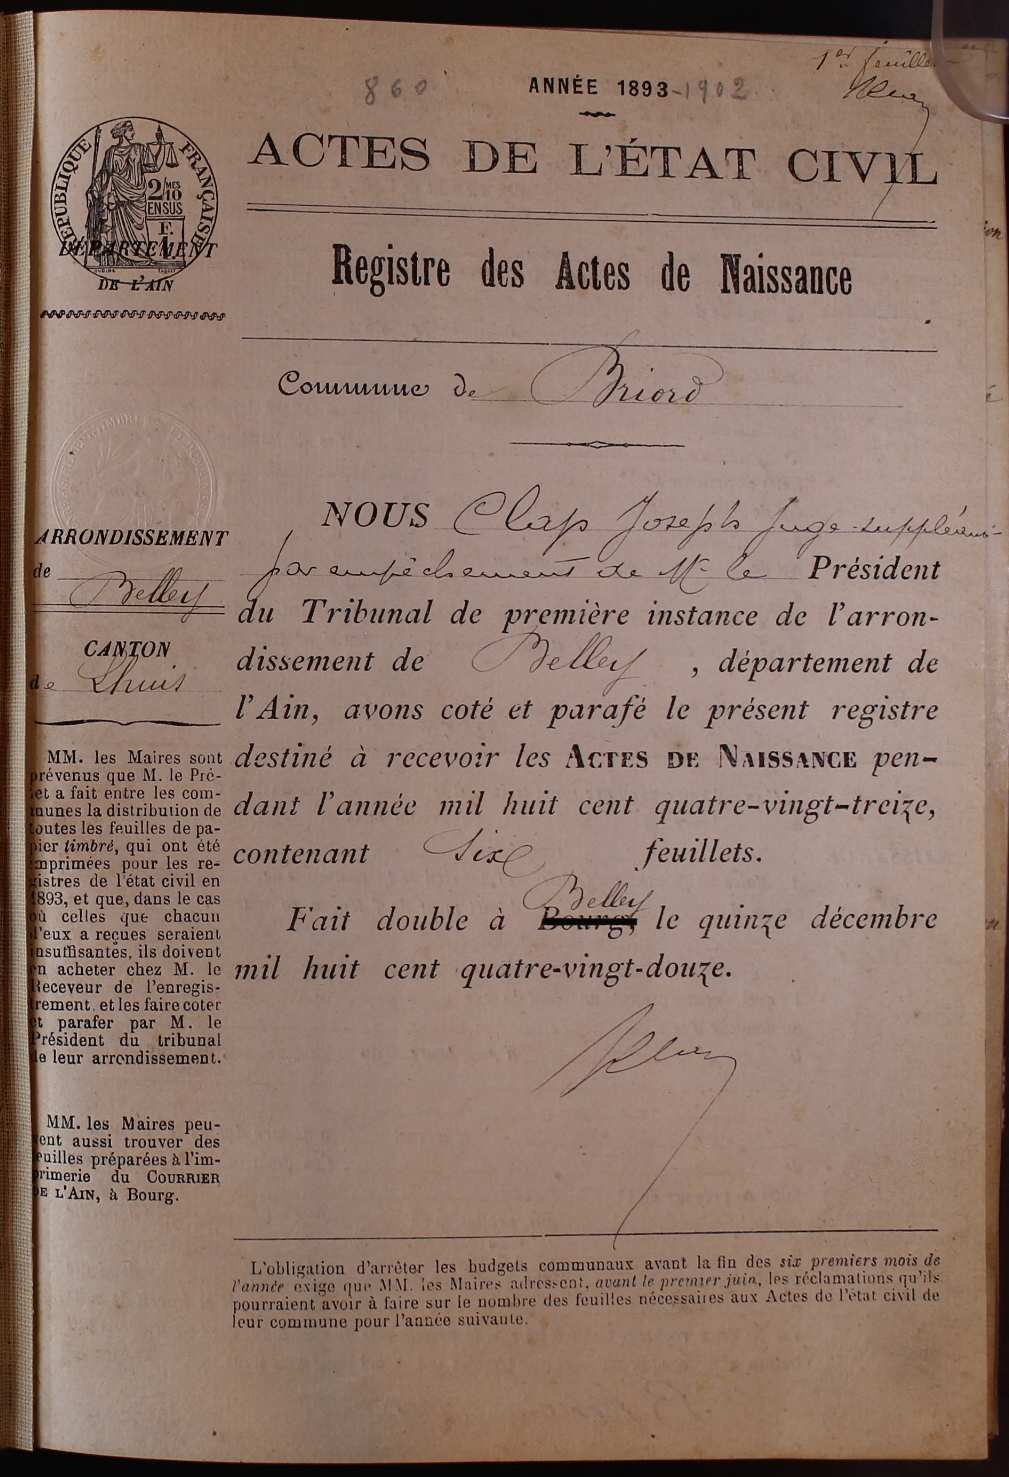 1er feuillet
860 ANNÉE 1893-1902
ACTES DE L'ÉTAT CIVIL
RÉPUBLIQUE FRANÇAISE
2/10 MES
EN SUS
F.
1
DÉPARTEMENT
DE L'AIN
Registre des Actes de Naissance
Commune de Briord
ARRONDISSEMENT
de Belley
CANTON
de Lhuis
MM. les Maires sont
prévenus que M. le Pré-
fet a fait entre les com-
munes la distribution de
toutes les feuilles de pa-
pier timbré, qui ont été
imprimées pour les re-
gistres de l'état civil en
1893, et que, dans le cas
où celles que chacun
d'eux a reçues seraient
insuffisantes, ils doivent
en acheter chez M. le
Receveur de l'enregis-
trement, et les faire coter
et parafer par M. le
Président du tribunal
de leur arrondissement.
MM. les Maires peu-
vent aussi trouver des
feuilles préparées à l'im-
primerie du COURRIER
DE L'AIN, à Bourg.
NOUS Clap Joseph Juge suppléant
par empêchement de Mr le Président
du Tribunal de première instance de l'arron-
dissement de Belley, département de
l'Ain, avons coté et parafé le présent registre
destiné à recevoir les ACTES DE NAISSANCE pen-
dant l'année mil huit cent quatre-vingt-treize,
contenant six feuillets.
Belley
Fait double à Bourg, le quinze décembre
mil huit cent quatre-vingt-douze.
L'obligation d'arrêter les budgets communaux avant la fin des six premiers mois de
l'année exige que MM. les Maires adressent, avant le premier juin, les réclamations qu'ils
pourraient avoir à faire sur le nombre des feuilles nécessaires aux Actes de l'état civil de
leur commune pour l'année suivante.